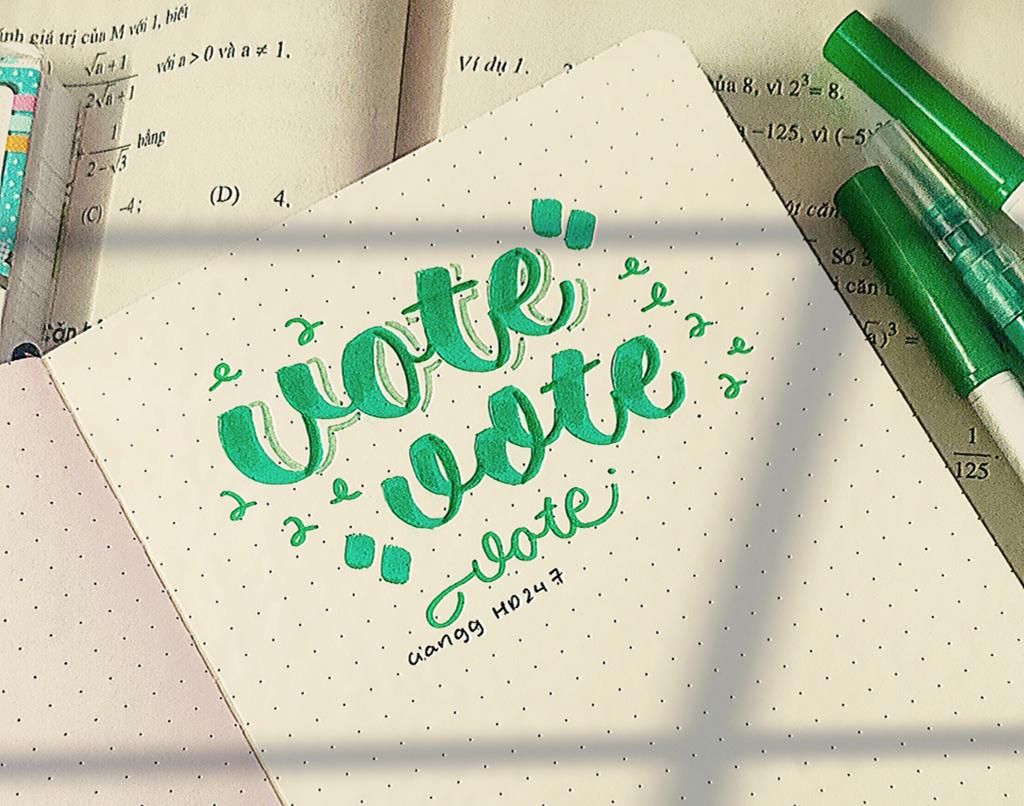 ánh giá trị của M với 1, biết
√a+1
2√a+1
với a > 0 và a ≠ 1.
1
2-√3
bằng
(C) -4;
(D) 4.
Ví dụ 1.
của 8, vì 2³ = 8.
-125, vì (-5)
Số
căn
)³ =
1
125
"vote
vote"
vote
HD247